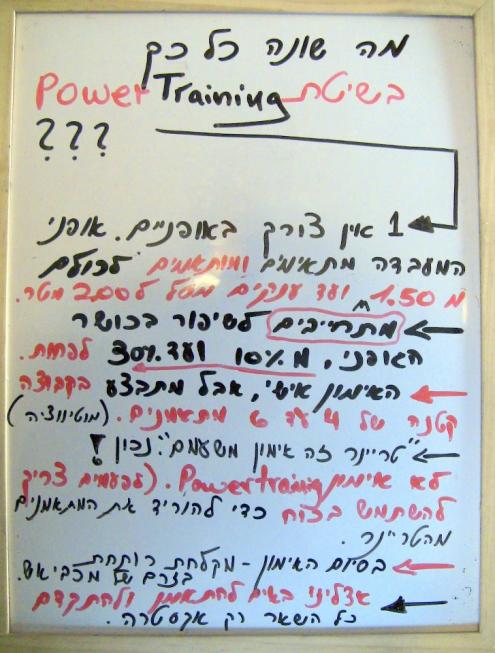 מה שונה כל כך
בשיטת Power Training
???
1 אין צורך באופניים. אופני
המעבדה מתאימים ומותאמים לכולם
מ 1.50 ועד ענקים מעל ל 2.00 מטר.
מתחייבים לשיפור בכושר
הגופני, מ 10% ועד 30% לפחות.
האימון אישי, אבל מתבצע בקבוצה
קטנה של 4 עד 6 מתאמנים. (מוטיווציה)
"טריינר זה אימון משעמם". נכון!
לא אימון Powertraining. (לפעמים צריך
להשתמש בכוח כדי להוריד את המתאמנים
מהטריינר.
בסיום האימון - מקלחת רותחת
בזרם מכביאש.
אצלינו באים להתאמן ולהתקדם
כל השאר רק אקסטרה.